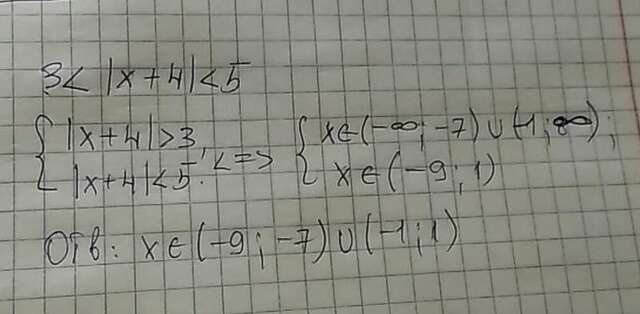 3 < |x + 4| < 5
{ |x+4| > 3, <=> { x ∈ (-∞; -7) ∪ (-1; ∞);
|x+4| < 5. x ∈ (-9; 1)
Отв: x ∈ (-9; -7) ∪ (-1; 1)